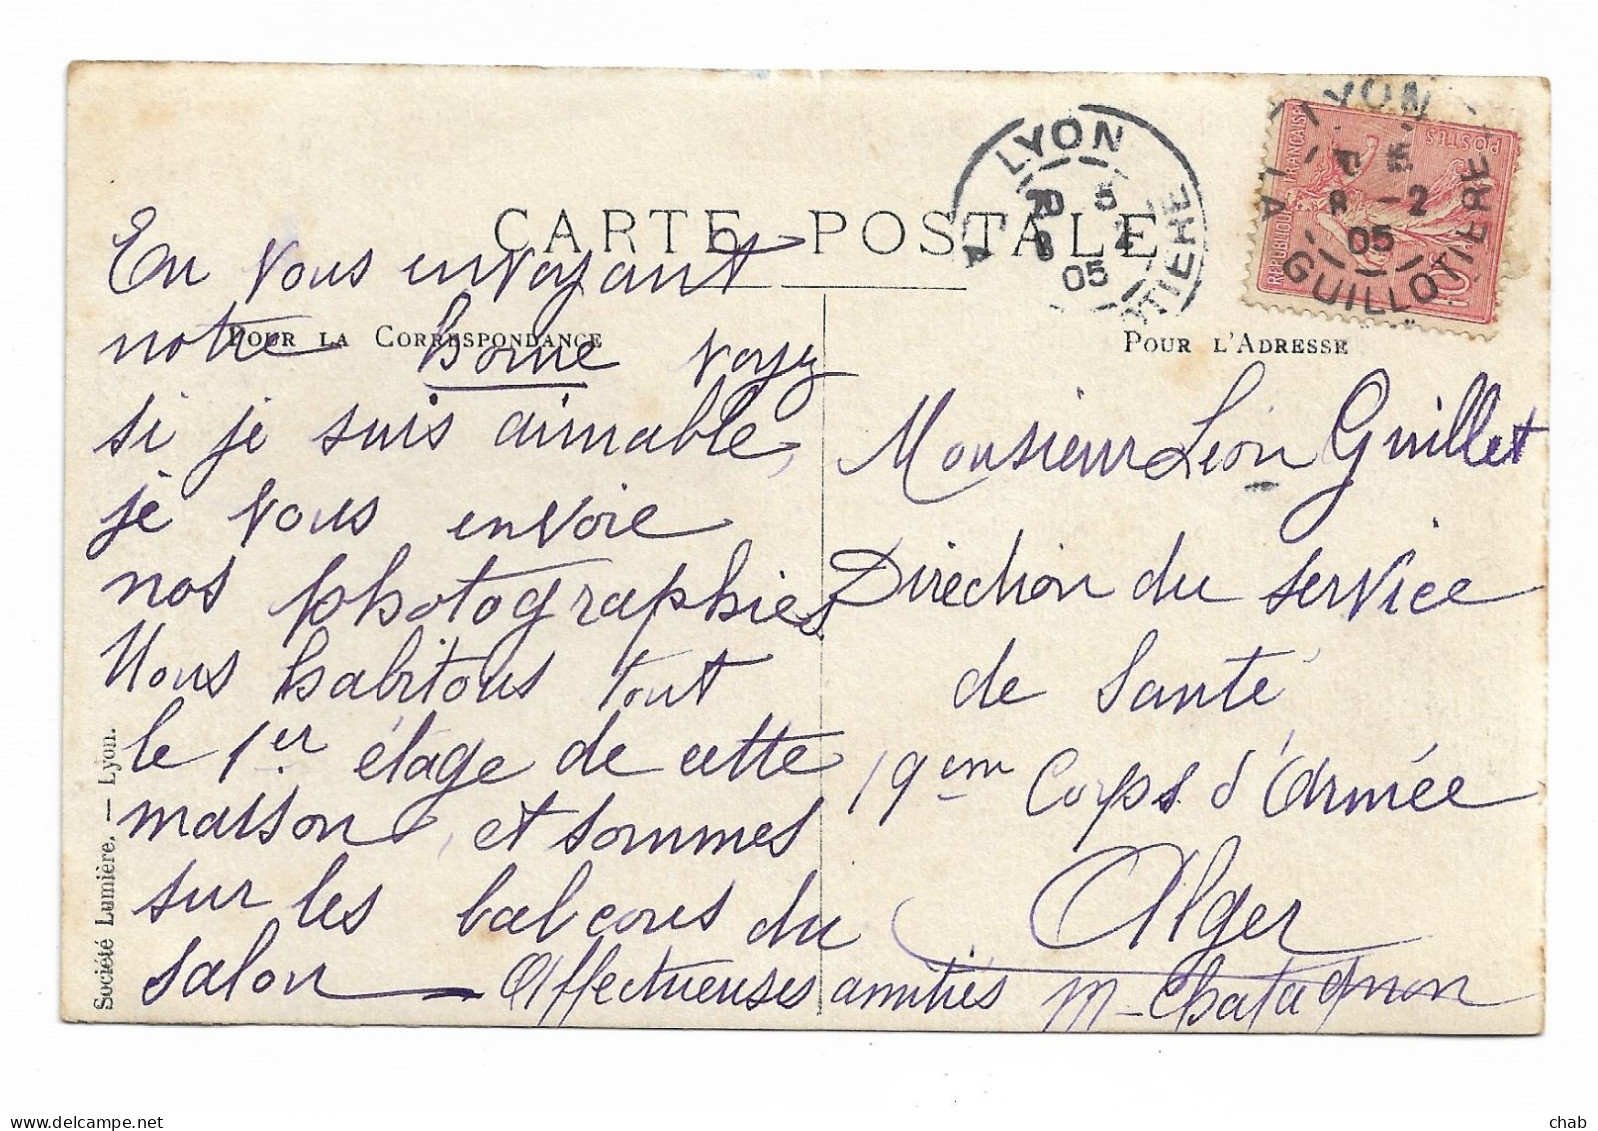 CARTE POSTALE
POUR LA CORRESPONDANCE
POUR L'ADRESSE
LYON
5
8 2
05
LYON
8 -2
05
LA GUILLOTIERE
REPUBLIQUE FRANÇAISE
POSTES
10
En vous envoyant
notre home voyez
si je suis aimable,
je vous envoie
nos photographies
Nous habitons tout
le 1er étage de cette
maison, et sommes
sur les balcons du
salon — Affectueuses amitiés M-Chatagnon
Monsieur Léon Guillet
Direction du service
de Santé
19em Corps d'Armée
Alger
Société Lumière. — Lyon.
chab